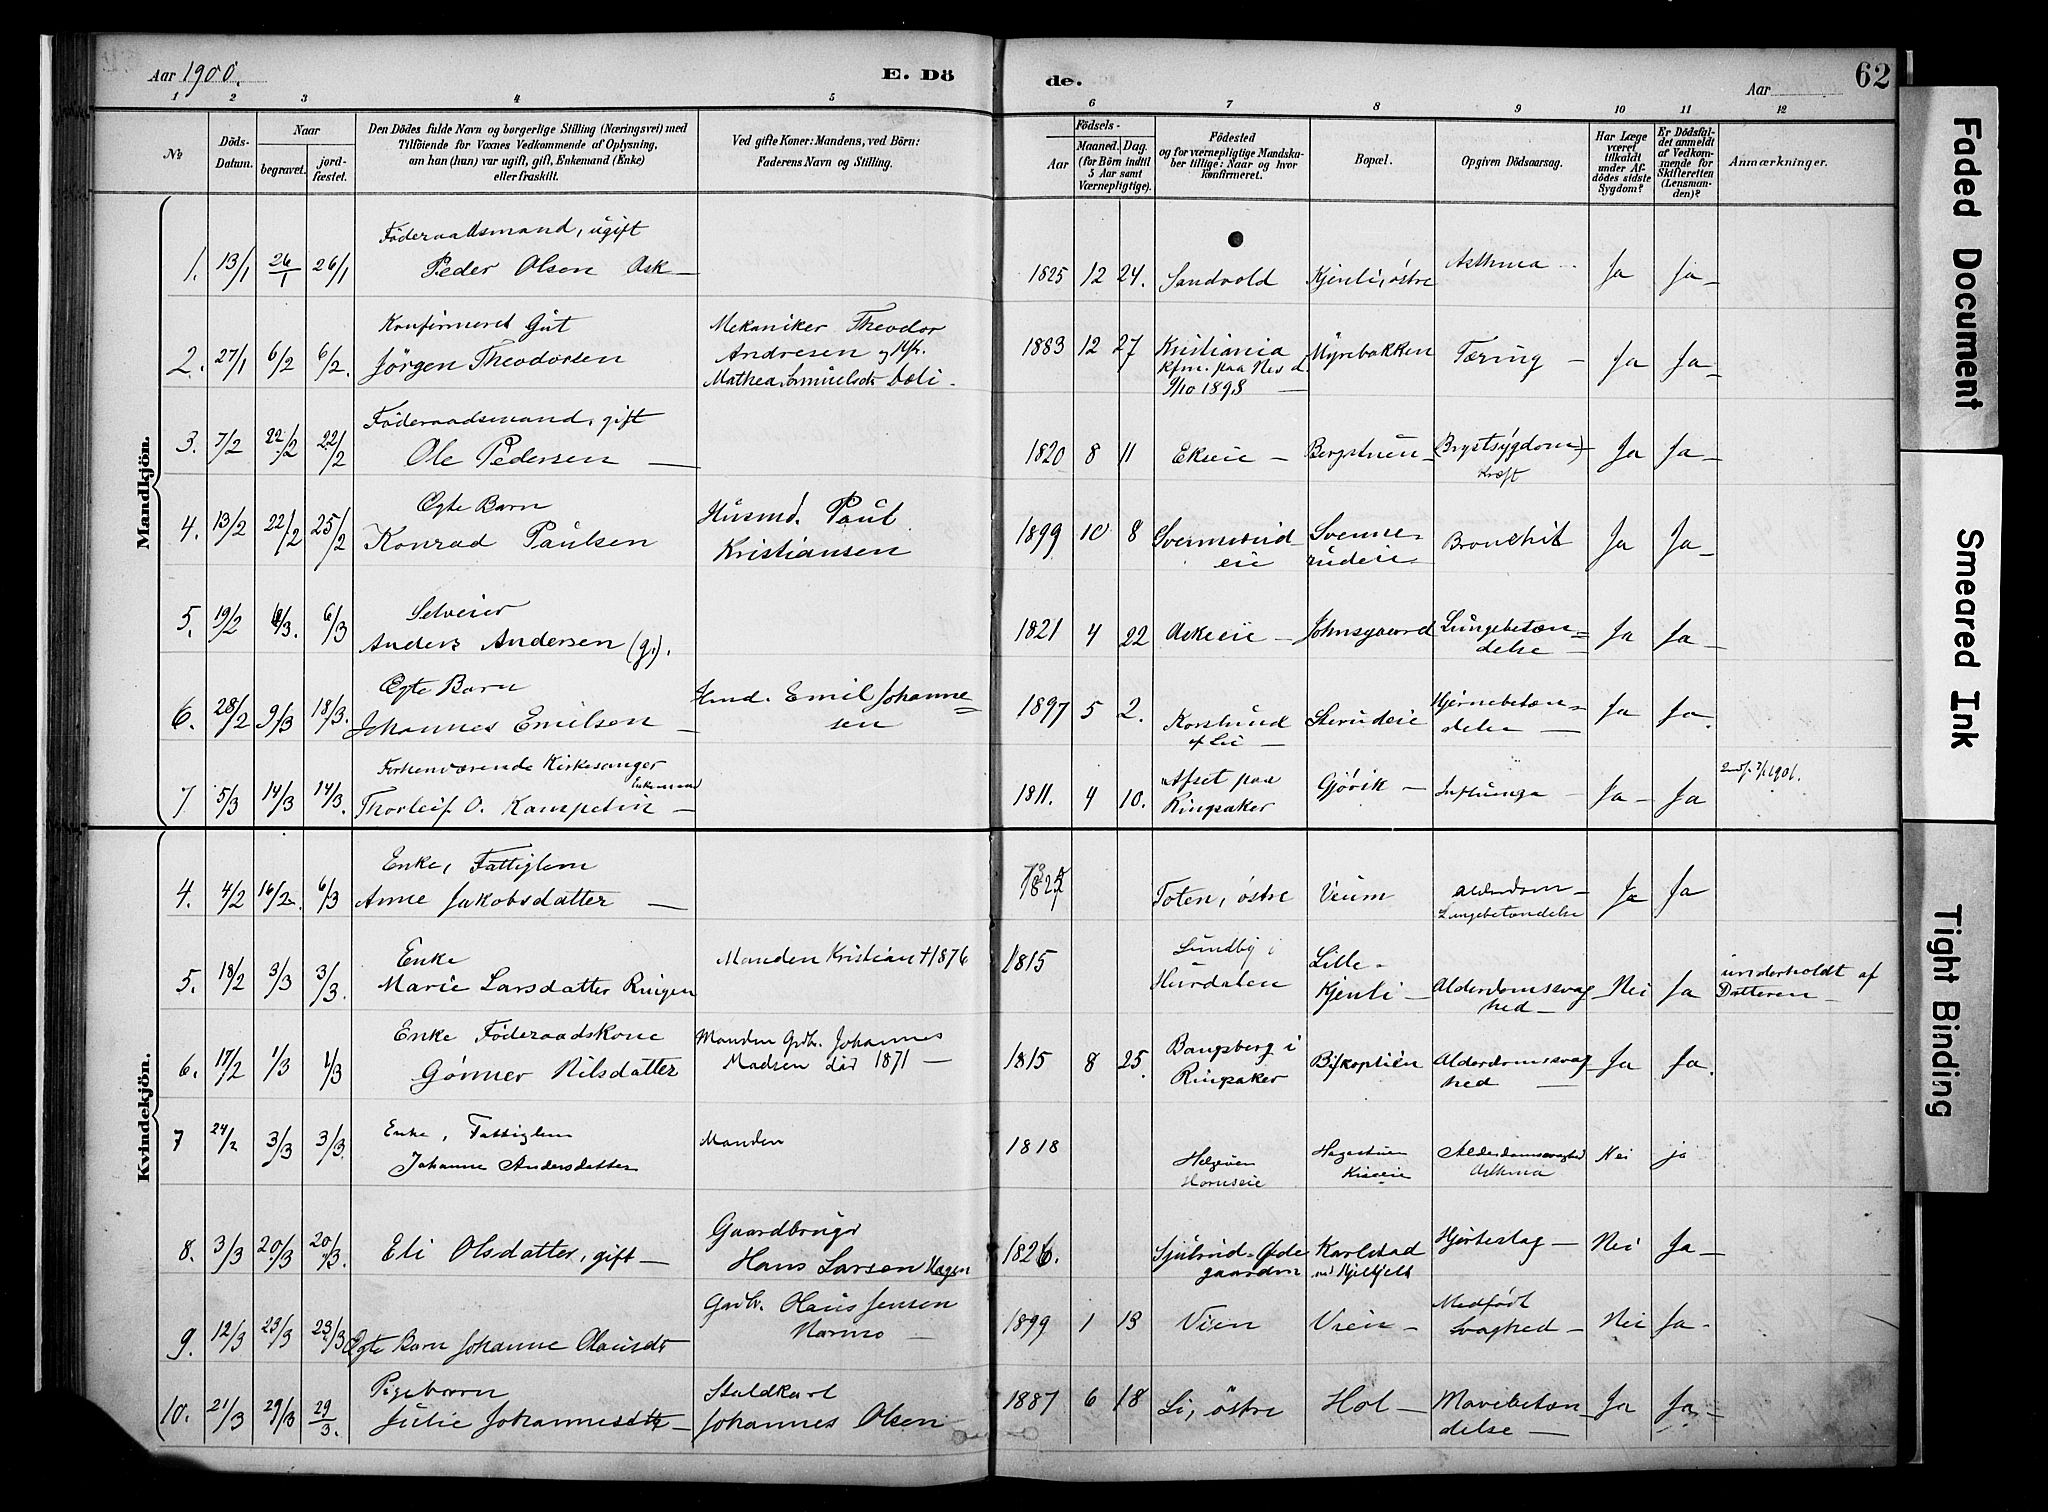 Aar 1900.
E. Dö
de.
Aar
62
1 2 3 4 5 6 7 8 9 10 11 12
No
Döds-Datum.
Naar
begravet.
jord-fæstet.
Den Dödes fulde Navn og borgerlige Stilling (Næringsvei) med
Tilföiende for Voxnes Vedkommende af Oplysning,
om han (hun) var ugift, gift, Enkemand (Enke)
eller fraskilt.
Ved gifte Koner: Mandens, ved Börn:
Faderens Navn og Stilling.
Födsels-
Aar
Maaned. (for Börn indtil 5 Aar samt Værnepligtige).
Dag.
Födested
og for værnepligtige Mandska-
ber tillige: Naar og hvor
konfirmeret.
Bopæl.
Opgiven Dödsaarsag.
Har Læge
været
tilkaldt
under Af-
dödes sidste
Sygdom?
Er Dödsfal-
det anmeldt
af Vedkom-
mende for
Skifteretten
(Lensman-
den)?
Anmærkninger.
Mandkjön.
1. 13/1 26/1 26/1 Föderaadsmand, ugift
Peder Olsen Ask — 1825 12 24. Sandvold Kjenli, östre Asthma Ja Ja —
2. 27/1 6/2 6/2. Konfirmeret Gut
Jörgen Theodorsen
Mekaniker Theodor
Andresen og Hst.
Mathea Samuelsdr Dæli.
1883 12 27 Kristiania
Kfm. paa Nes d.
9/10 1898 —
Myrebakken Tæring — Ja Ja —
3. 7/2 22/2 22/2 Föderaadsmand, gift
Ole Pedersen — 1820 8 11 Ekeie — Bergstuen (Brystsygdom)
Kræft
Ja Ja —
4. 13/2 22/2 25/2 Ægte Barn
Konrad Paulsen
Husmd. Paul
Kristiansen
1899 10 8 Svennerud-
eie
Svenne-
rudeie
Bronchit Ja Ja —
5. 19/2 6/3. 6/3 Selveier
Anders Andersen (g.).
1821 4 22 Askeie — Johnsgaard Lungebetæn-
delse
Ja Ja —
6. 28/2 9/3 18/3. Ægte Barn
Johannes Emilsen —
Hmd. Emil Johanne-
sen
1897 5 2. Korslund
af Lie —
Skrudeie Hjernebetæn-
delse —
Ja Ja.
7 5/3 14/3 14/3. Forhenværende Kirkesanger
Enkemand
Thorleif O. Kampetin —
1811. 4 10. Afset paa
Ringsaker
Gjövik — Influenza — Ja — Ja 1901.
Kvindekjön.
4. 4/2 16/2. 6/3 Enke, Fattiglem
Anne Jakobsdatter — Toten, östre Vium Alderdom —
Lungebetændelse
Ja Ja
5. 18/2 3/3 3/3. Enke
Marie Larsdatter Ringen
Manden Kristian † 1876
1815 Lundby i
Hurdalen
Lille-
Kjenli — Alderdomssvag
hed —
Nei Ja underholdt af
Datteren —
6. 17/2 1/3 1/3 Enke Föderaadskone
Gönner Nilsdatter
Manden Gdbr. Johannes
Madsen död 1871 —
1815 8 25. Bangsberg i
Ringsaker
Biskoplien Alderdomssvag
hed —
Ja Ja.
7 24/2 3/3 3/3. Enke, Fattiglem
Johanne Andersdatter
Manden
1818 Helgeuen
Horneseie
Hagestuen
Kiseeie
Alderdomssvaghed
Asthma
Nei ja
8. 3/3 20/3 20/3. Eli Olsdatter, gift —
Gaardbruger
Hans Larsen Hagen
1826. Sjulrud-Öde
gaarden
Karlstad
Hjerteslag — Nei Ja —
9. 12/3 23/3 23/3 Ægte Barn Johanne Olausdr
Gaardbr. Olaus Jensen
Narmo —
1899 1 13 Vien Vien — Medfödt
Svaghed — Nei Ja —
10. 21/3 29/3 29/3. Pigebarn
Julie Johannesdtr —
Staldkarl
Johannes Olsen
1887 6 18 Li, östre Hol — Mavebetæn
delse — Ja Ja —
Faded Document
Smeared Ink
Tight Binding